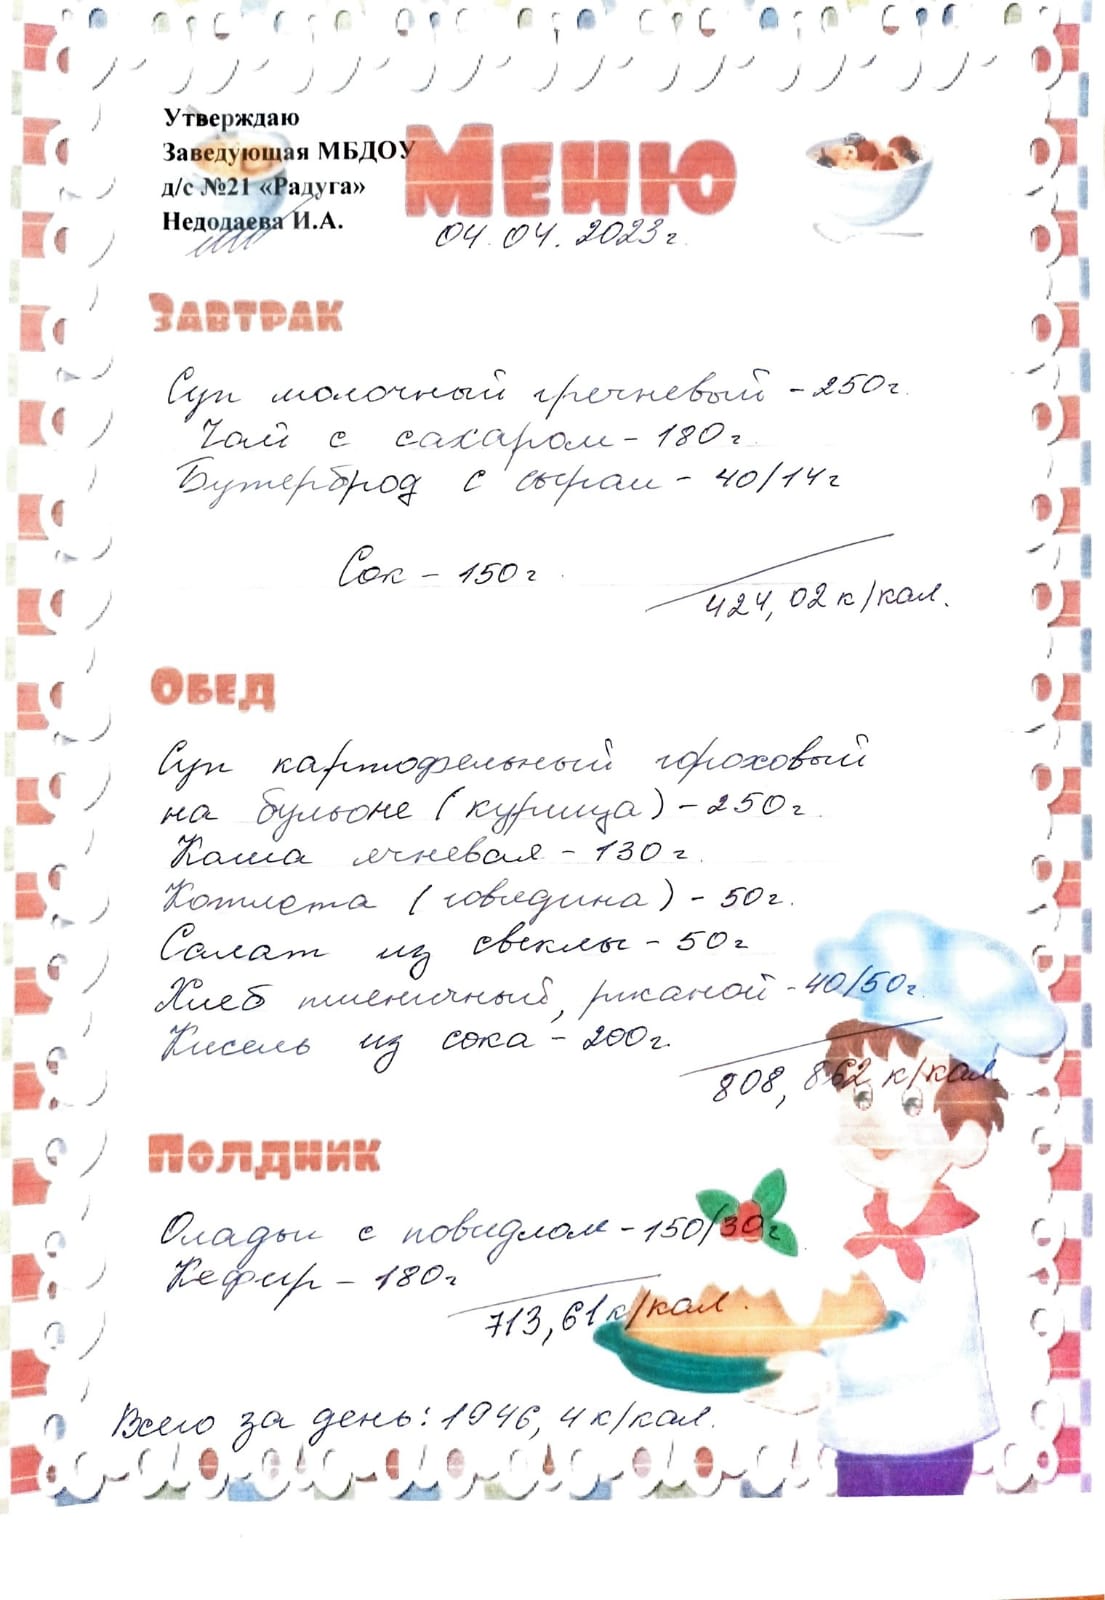 Утверждаю
Заведующая МБДОУ
д/с №21 «Радуга»
Недодаева И.А.
Меню
04.04.2023г.
Завтрак
Суп молочный гречневый - 250г.
Чай с сахаром - 180г.
Бутерброд с сыром - 40/14г
Сок - 150г.
424,02 к/кал.
Обед
Суп картофельный гороховый
на бульоне (курица) - 250г.
Каша ячневая - 130г.
Котлета (говядина) - 50г.
Салат из свеклы - 50г
Хлеб пшеничный, ржаной - 40/50г.
Кисель из сока - 200г.
808,862 к/кал.
Полдник
Оладьи с повидлом - 150/30г
Кефир - 180г
713,61 к/кал.
Всего за день: 1946,4 к/кал.